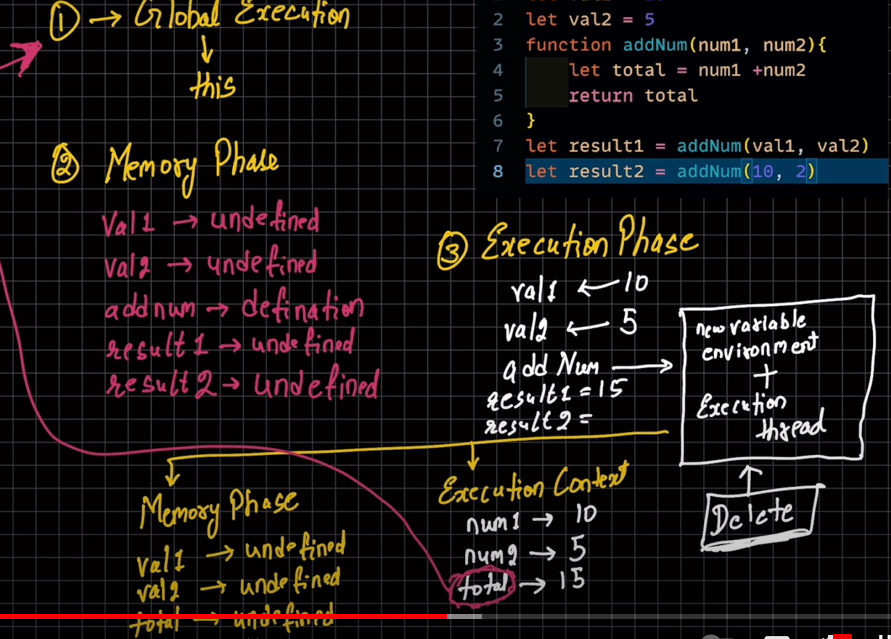 ① → Global Execution
↓
this
② Memory Phase
Val1 → undefined
val2 → undefined
addnum → defination
result1 → undefined
result2 → undefined
2 let val2 = 5
3 function addNum(num1, num2){
4 let total = num1 +num2
5 return total
6 }
7 let result1 = addNum(val1, val2)
8 let result2 = addNum(10, 2)
③ Execution Phase
val1 ← 10
val2 ← 5
add Num →
result1 = 15
result2 =
new variable
environment
+
Execution
thread
Delete
Memory Phase
val1 → undefined
val2 → undefined
total → undefined
Execution Context
num1 → 10
num2 → 5
total → 15